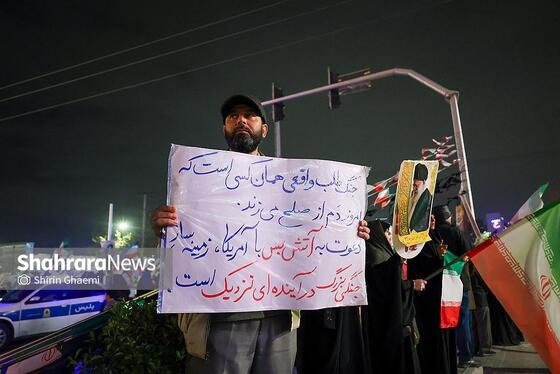 جنگ طلب واقعی همان کسی است که
امروز دَم از صلح می‌زند.
دعوت به آتش بس با آمریکا، زمینه ساز
جنگی بزرگ در آینده ای نزدیک است.
ShahraraNews.ir
© Shirin Ghaemi
پلیس